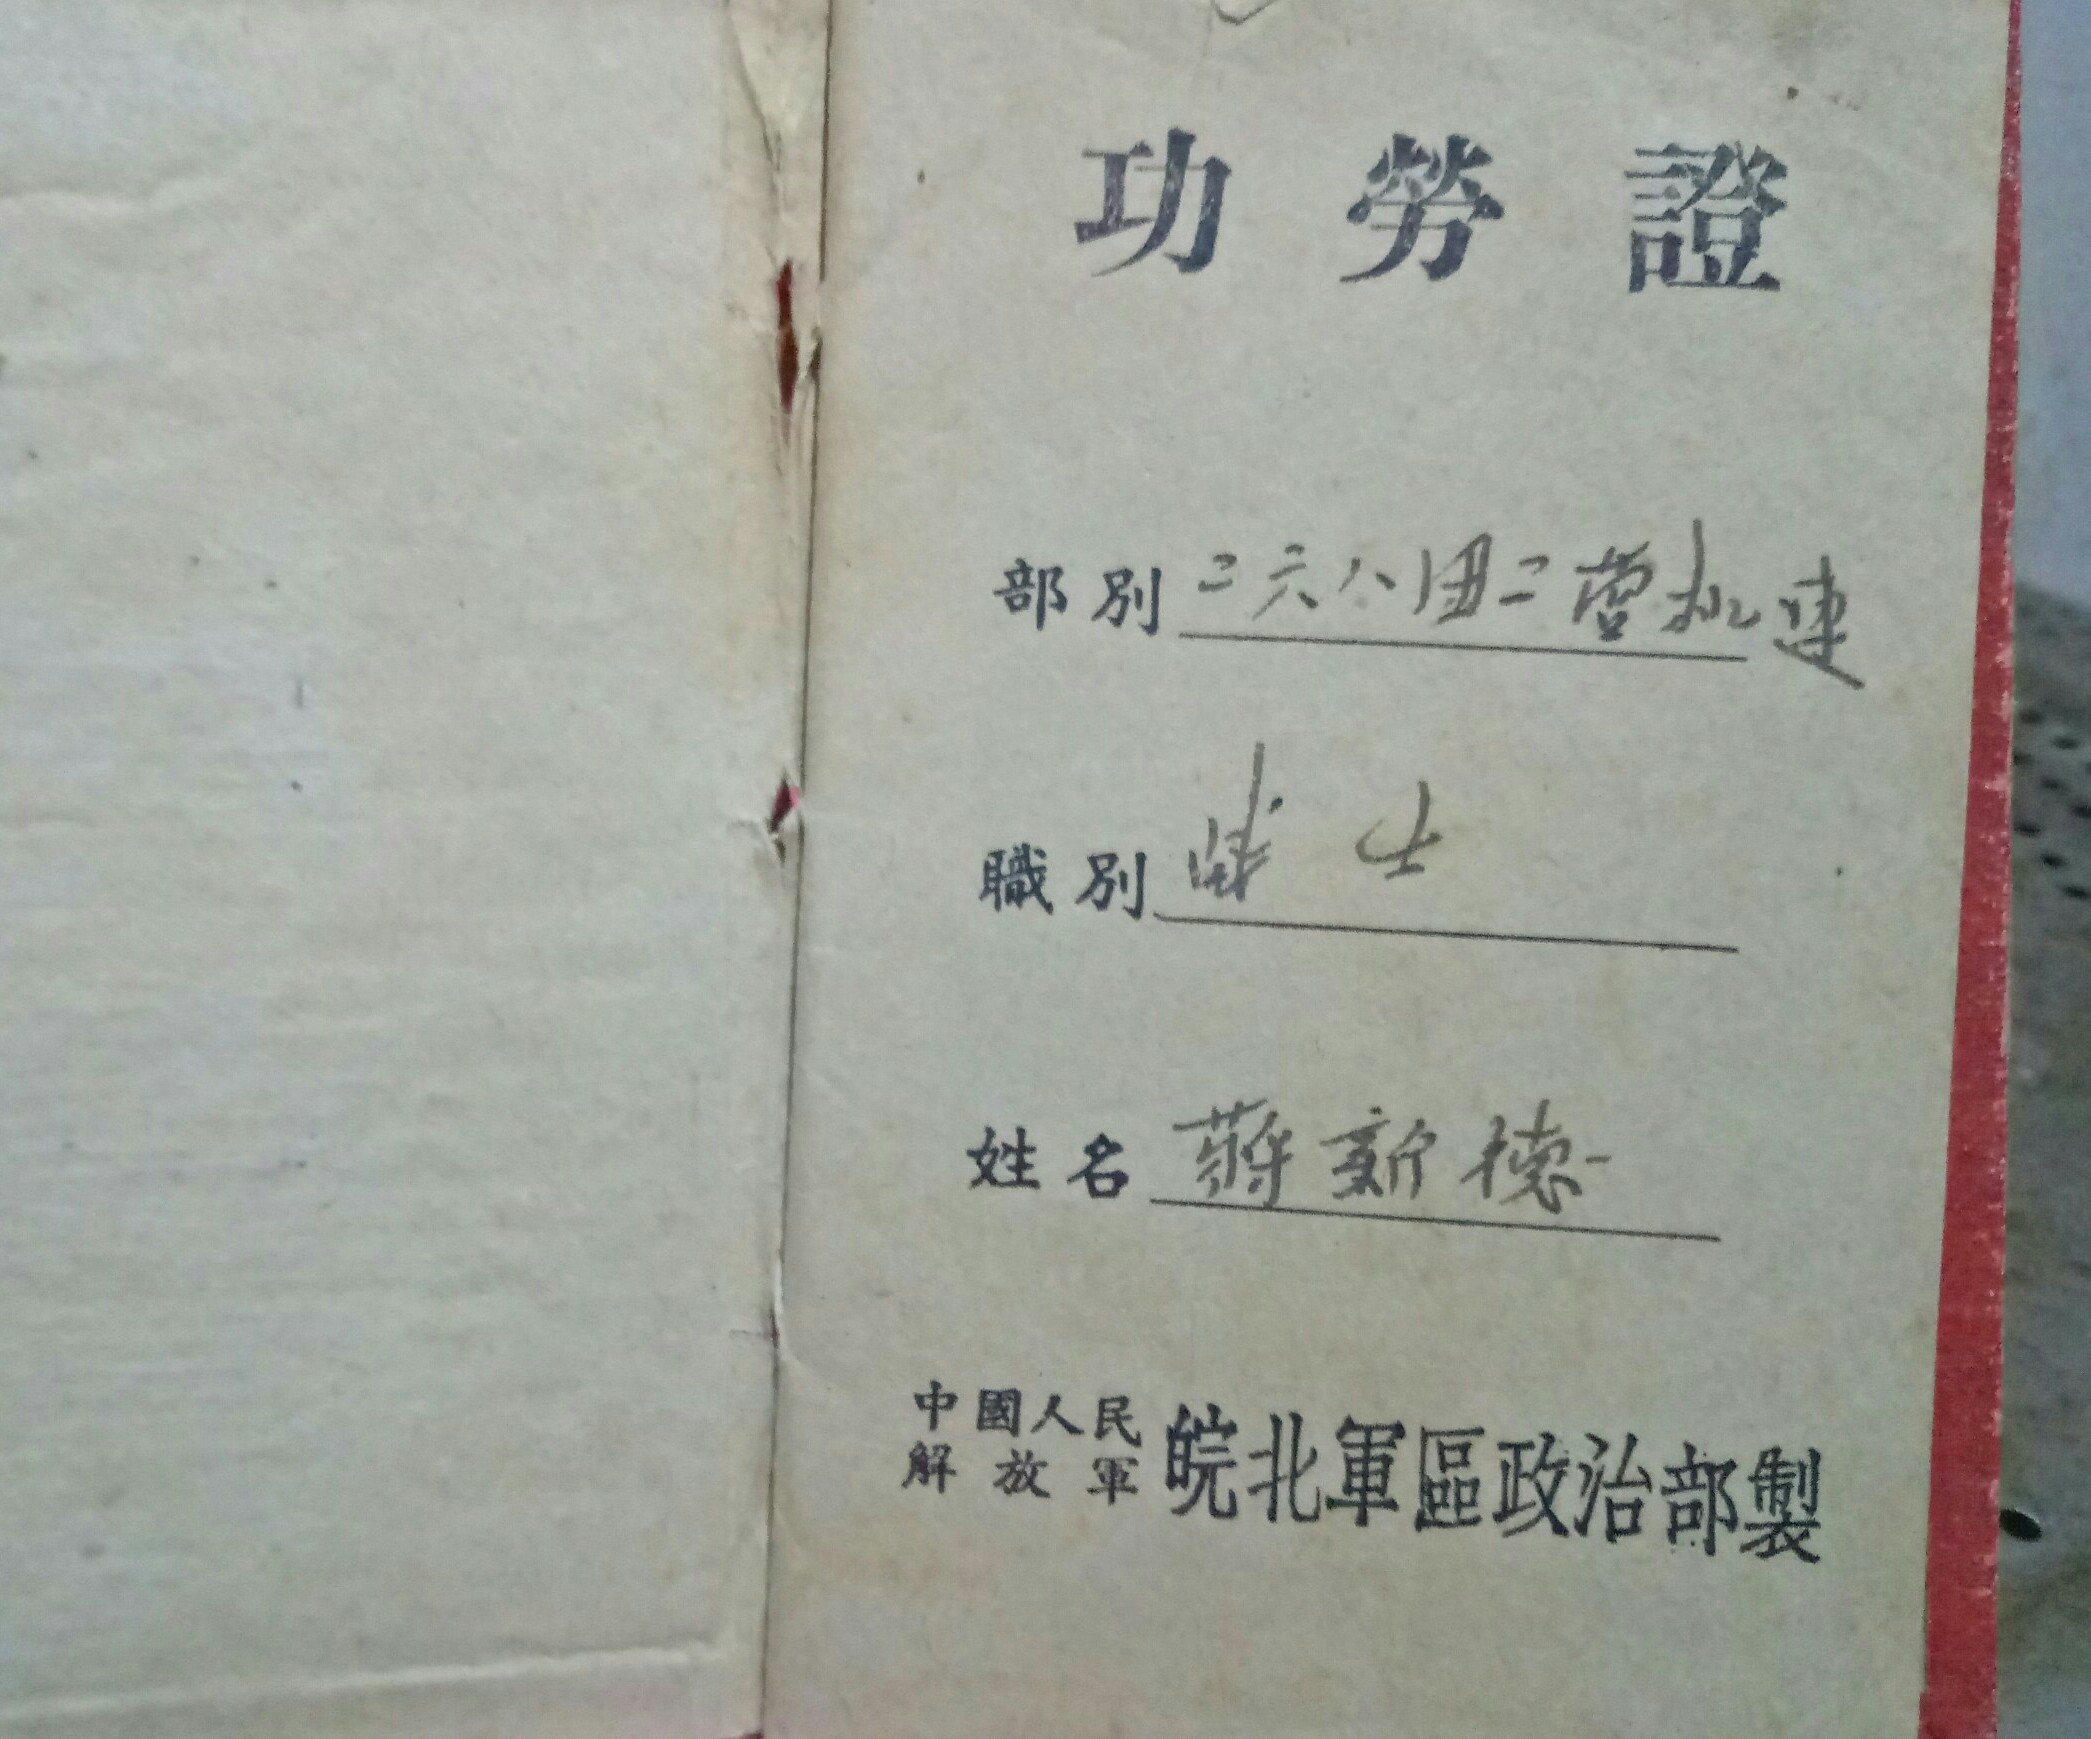 功勞證
部別 二六八团二营机连
職別 战士
姓名 蔣新德
中國人民
解放軍 皖北軍區政治部製